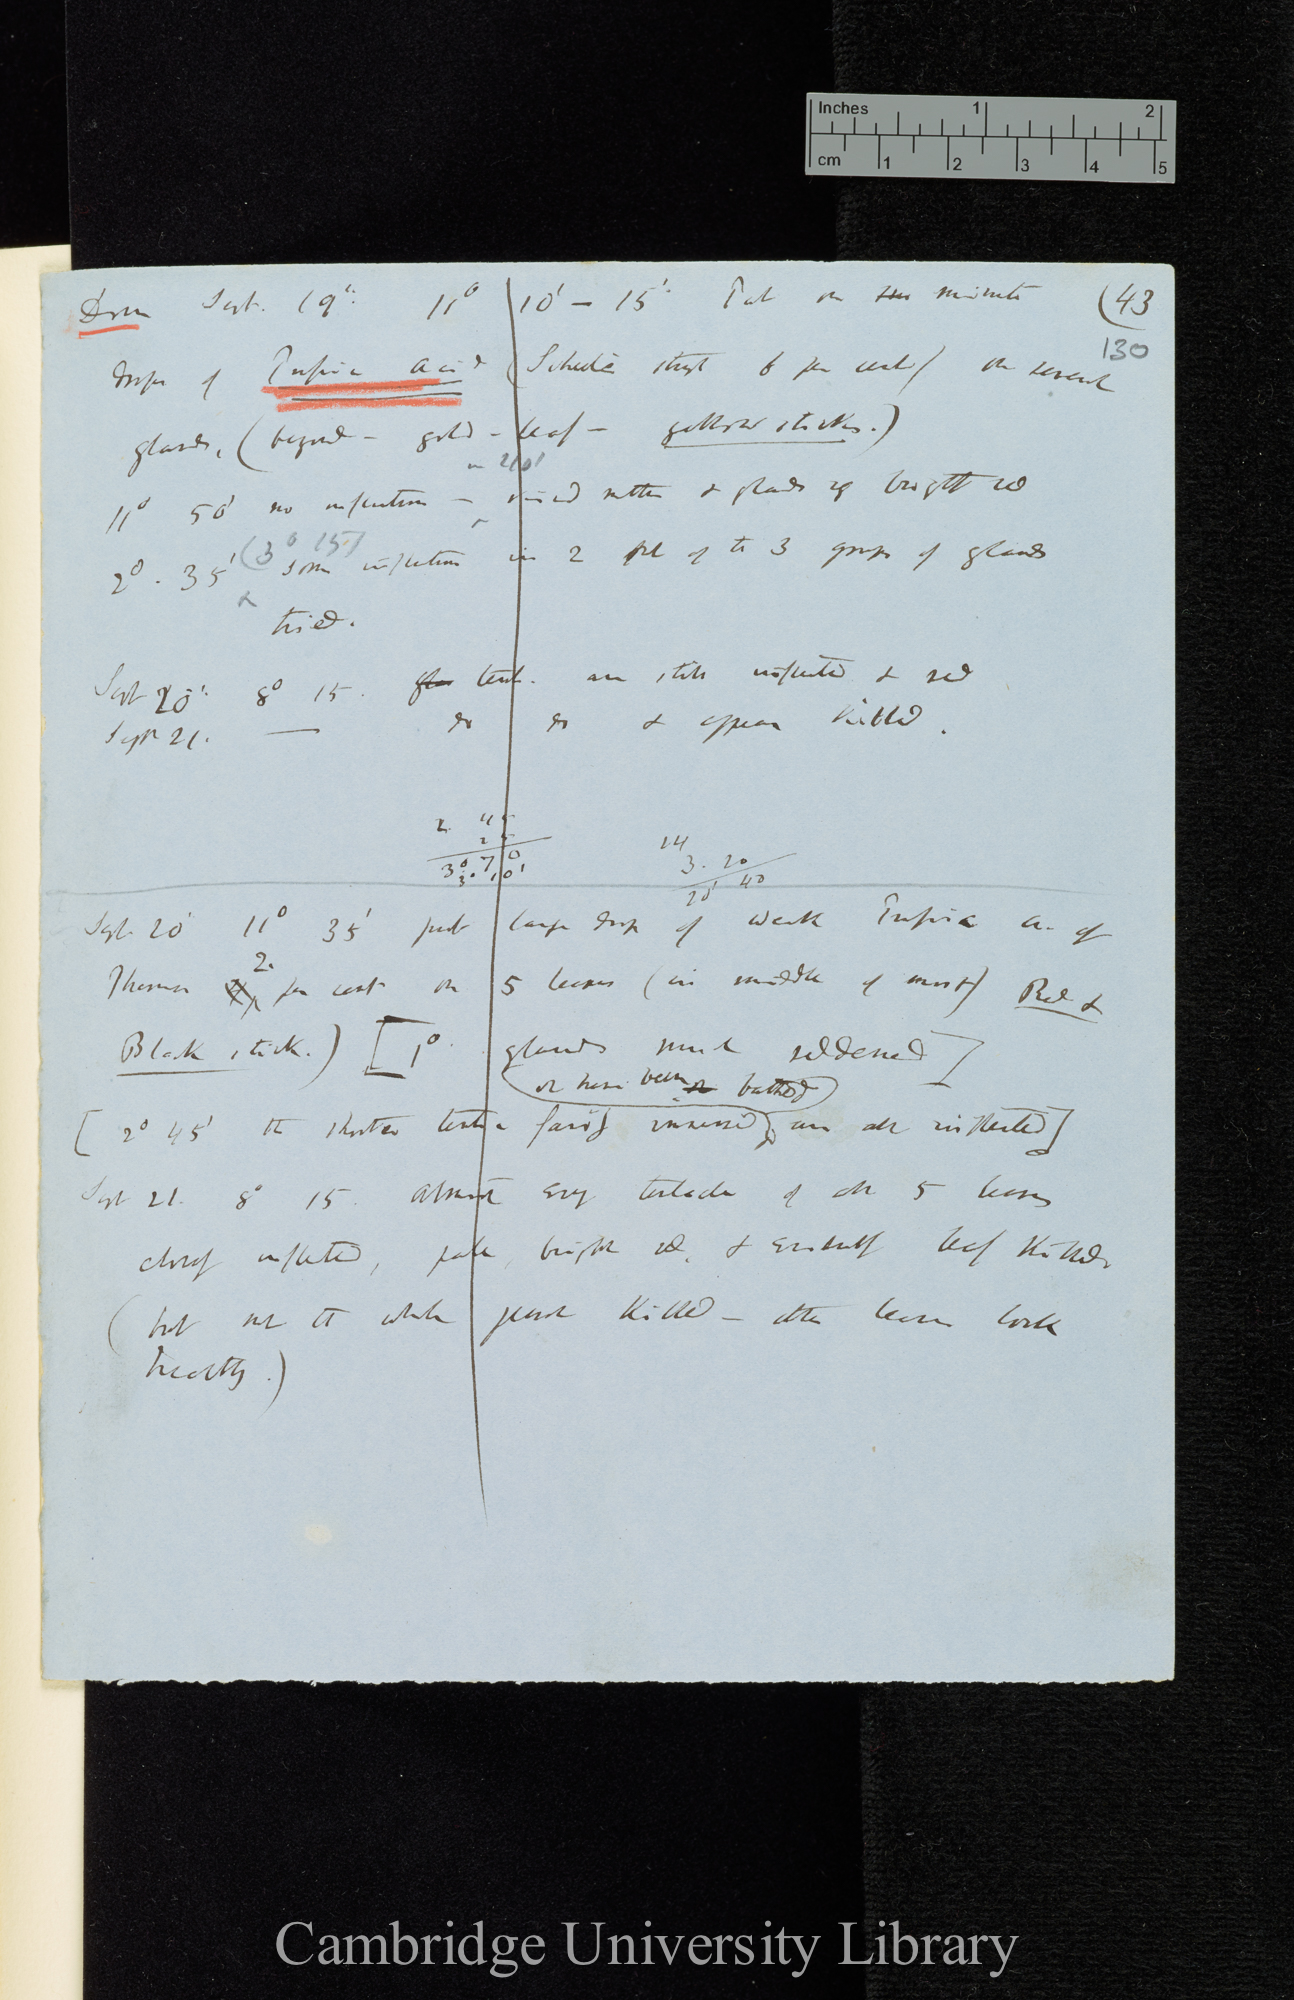 Inches 1 2
cm 1 2 3 4 5
Sept. 19th. 11° 10' – 15'. Put on minute (43
130
drops of Prussic acid (Scheele's strength 6 per cent) on several
glands, (beyond – gold – leaf – yellow sticks.)
in 2° 10'
11° 50' no inflection – matter & glands of bright red
(3° 15')
2°. 35' some inflection in 2 out of the 3 groups of glands
tried.
Sept 20th. 8° 15. tent. are still inflected & red
Sept 21. — do do & appear killed.
2. 45
25
3° 70
3° 10'
14
3. 20
20' 40
Sept 20' 11° 35' put large drops of weak Prussic ac. of
2.
per cent on 5 leaves (in middle of most) Red &
Black stick.) [1°. glands much reddened]
or have been bathed
[2° 45' the shorter tentac fairly immersed, are all inflected]
Sept 21. 8° 15. Almost every tentacle of all 5 leaves
closely inflected, pale, bright red, & eventually leaf killed
(but not the whole plant killed – other leaves look
healthy.)
Cambridge University Library